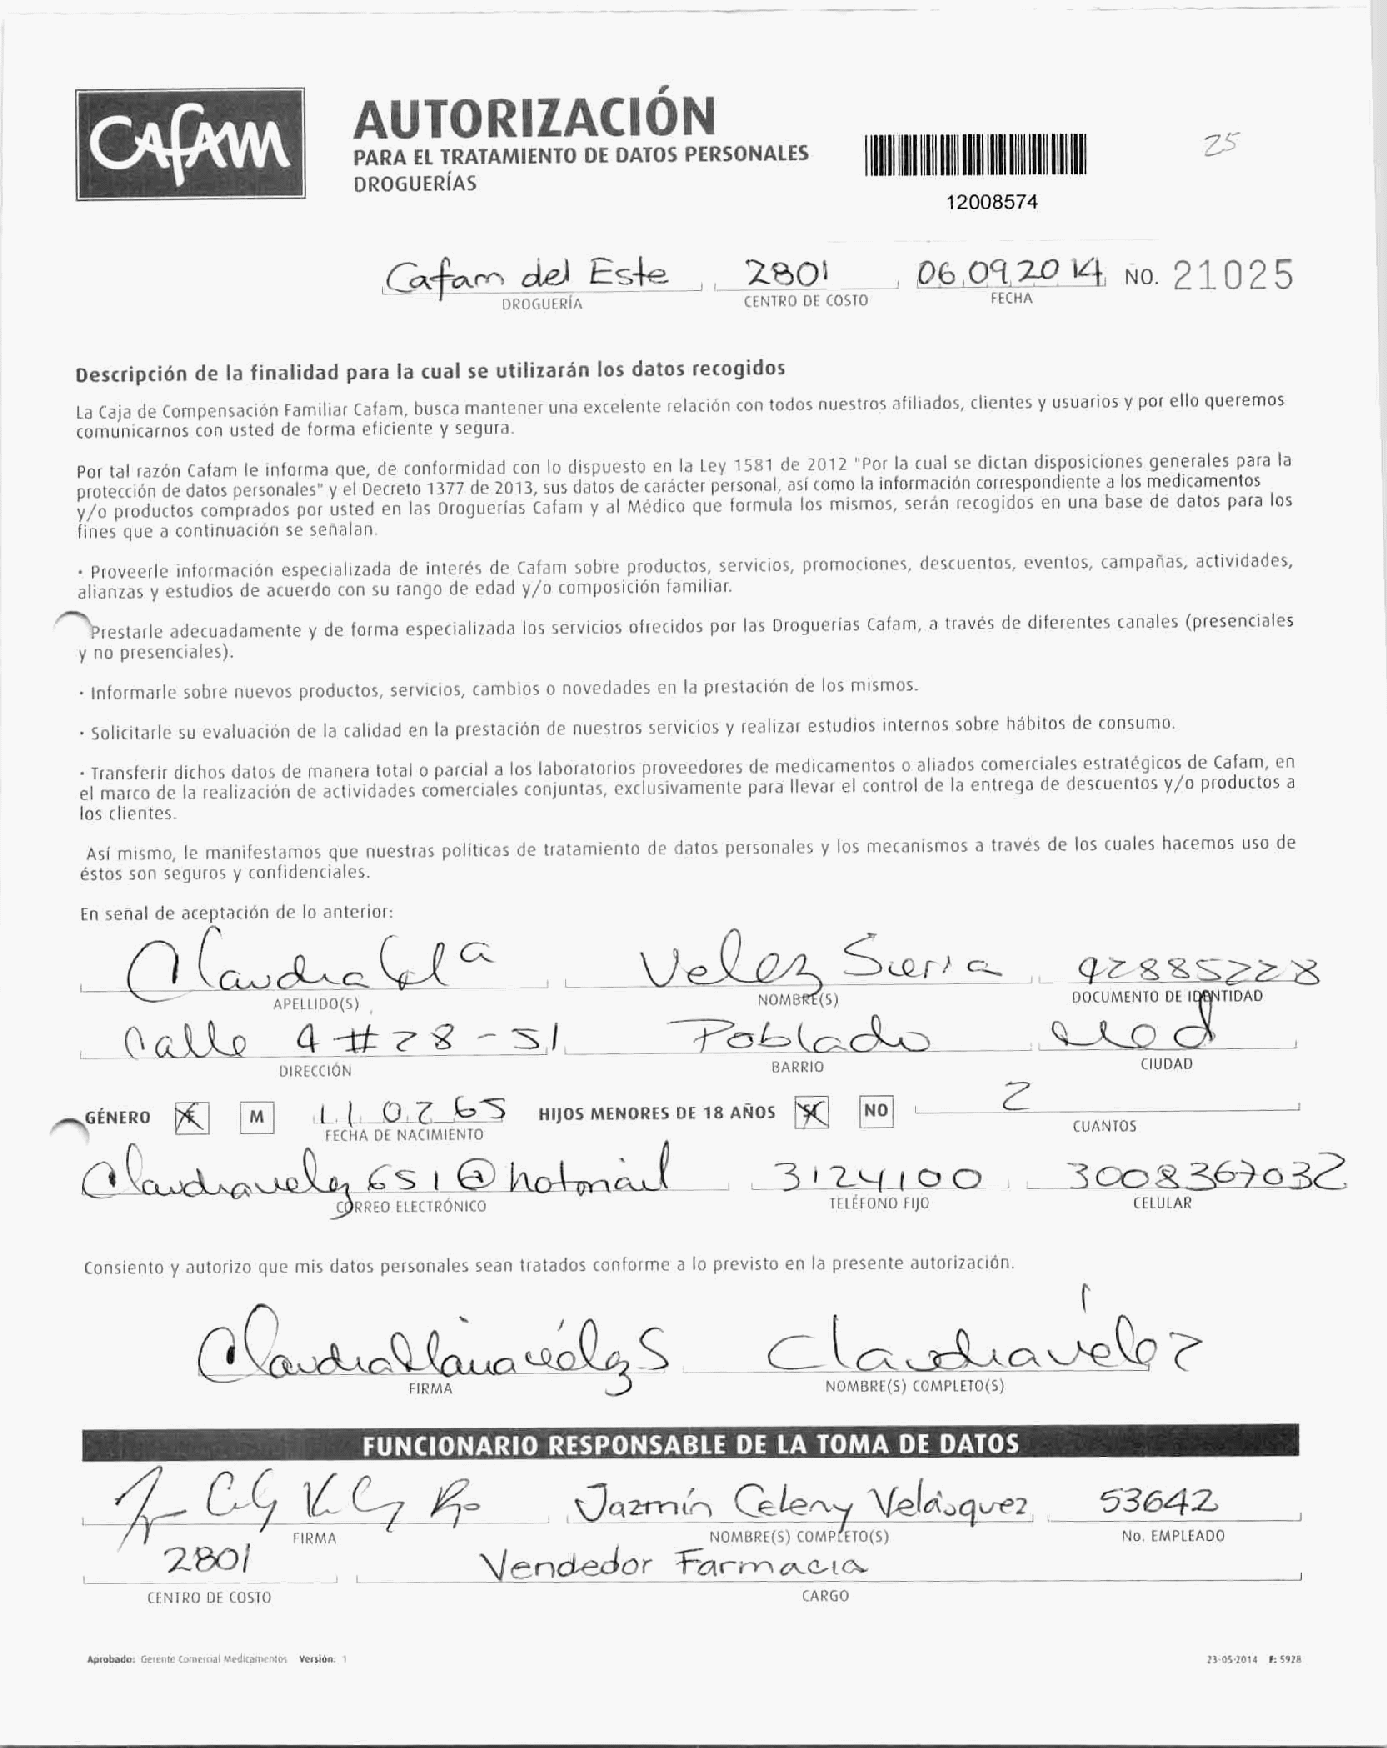 Cafam
AUTORIZACIÓN
PARA EL TRATAMIENTO DE DATOS PERSONALES
DROGUERÍAS
25
12008574
Cafam del Este 2801 06.09.2014 NO. 21025
DROGUERÍA CENTRO DE COSTO FECHA
Descripción de la finalidad para la cual se utilizarán los datos recogidos
La Caja de Compensación Familiar Cafam, busca mantener una excelente relación con todos nuestros afiliados, clientes y usuarios y por ello queremos
comunicarnos con usted de forma eficiente y segura.
Por tal razón Cafam le informa que, de conformidad con lo dispuesto en la Ley 1581 de 2012 "Por la cual se dictan disposiciones generales para la
protección de datos personales" y el Decreto 1377 de 2013, sus datos de carácter personal, así como la información correspondiente a los medicamentos
y/o productos comprados por usted en las Droguerías Cafam y al Médico que formula los mismos, serán recogidos en una base de datos para los
fines que a continuación se señalan.
· Proveerle información especializada de interés de Cafam sobre productos, servicios, promociones, descuentos, eventos, campañas, actividades,
alianzas y estudios de acuerdo con su rango de edad y/o composición familiar.
Prestarle adecuadamente y de forma especializada los servicios ofrecidos por las Droguerías Cafam, a través de diferentes canales (presenciales
y no presenciales).
· Informarle sobre nuevos productos, servicios, cambios o novedades en la prestación de los mismos.
· Solicitarle su evaluación de la calidad en la prestación de nuestros servicios y realizar estudios internos sobre hábitos de consumo.
· Transferir dichos datos de manera total o parcial a los laboratorios proveedores de medicamentos o aliados comerciales estratégicos de Cafam, en
el marco de la realización de actividades comerciales conjuntas, exclusivamente para llevar el control de la entrega de descuentos y/o productos a
los clientes.
Así mismo, le manifestamos que nuestras políticas de tratamiento de datos personales y los mecanismos a través de los cuales hacemos uso de
éstos son seguros y confidenciales.
En señal de aceptación de lo anterior:
Claudia Velez Sierra 42885228
APELLIDO(S) NOMBRE(S) DOCUMENTO DE IDENTIDAD
Calle 4 # 28 - 51 Poblado Med
DIRECCIÓN BARRIO CIUDAD
GÉNERO M 11 02 65 HIJOS MENORES DE 18 AÑOS NO 2
FECHA DE NACIMIENTO CUANTOS
Claudiavelez651@hotmail 3124100 3008367032
CORREO ELECTRÓNICO TELÉFONO FIJO CELULAR
Consiento y autorizo que mis datos personales sean tratados conforme a lo previsto en la presente autorización.
Claudia Liliana Vélez S Claudia velez
FIRMA NOMBRE(S) COMPLETO(S)
FUNCIONARIO RESPONSABLE DE LA TOMA DE DATOS
Jazmín Celeny Velásquez 53642
FIRMA NOMBRE(S) COMPLETO(S) No. EMPLEADO
2801 Vendedor Farmacia
CENTRO DE COSTO CARGO
Aprobado: Gerente Comercial Medicamentos Versión: 1 23-05-2014 F: 5928